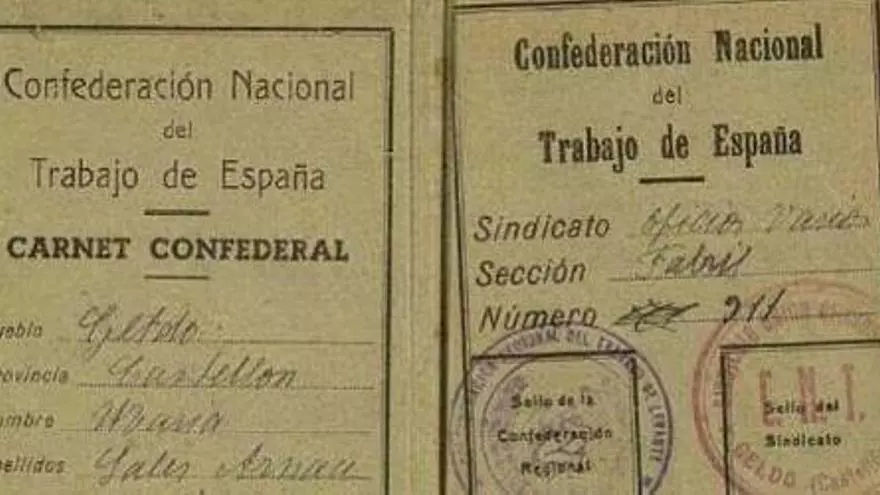 Confederación Nacional
del
Trabajo de España
CARNET CONFEDERAL
ueblo Geldo
rovincia Castellon
ombre Maria
pellidos Sales Arnau
Confederación Nacional
del
Trabajo de España
Sindicato Oficios Varios
Sección Fabril
Número 911
Sello de la
Confederación
Regional
DEL
DE LEVANTE
Sello del
Sindicato
C.N.T.
GELDO (Castellón